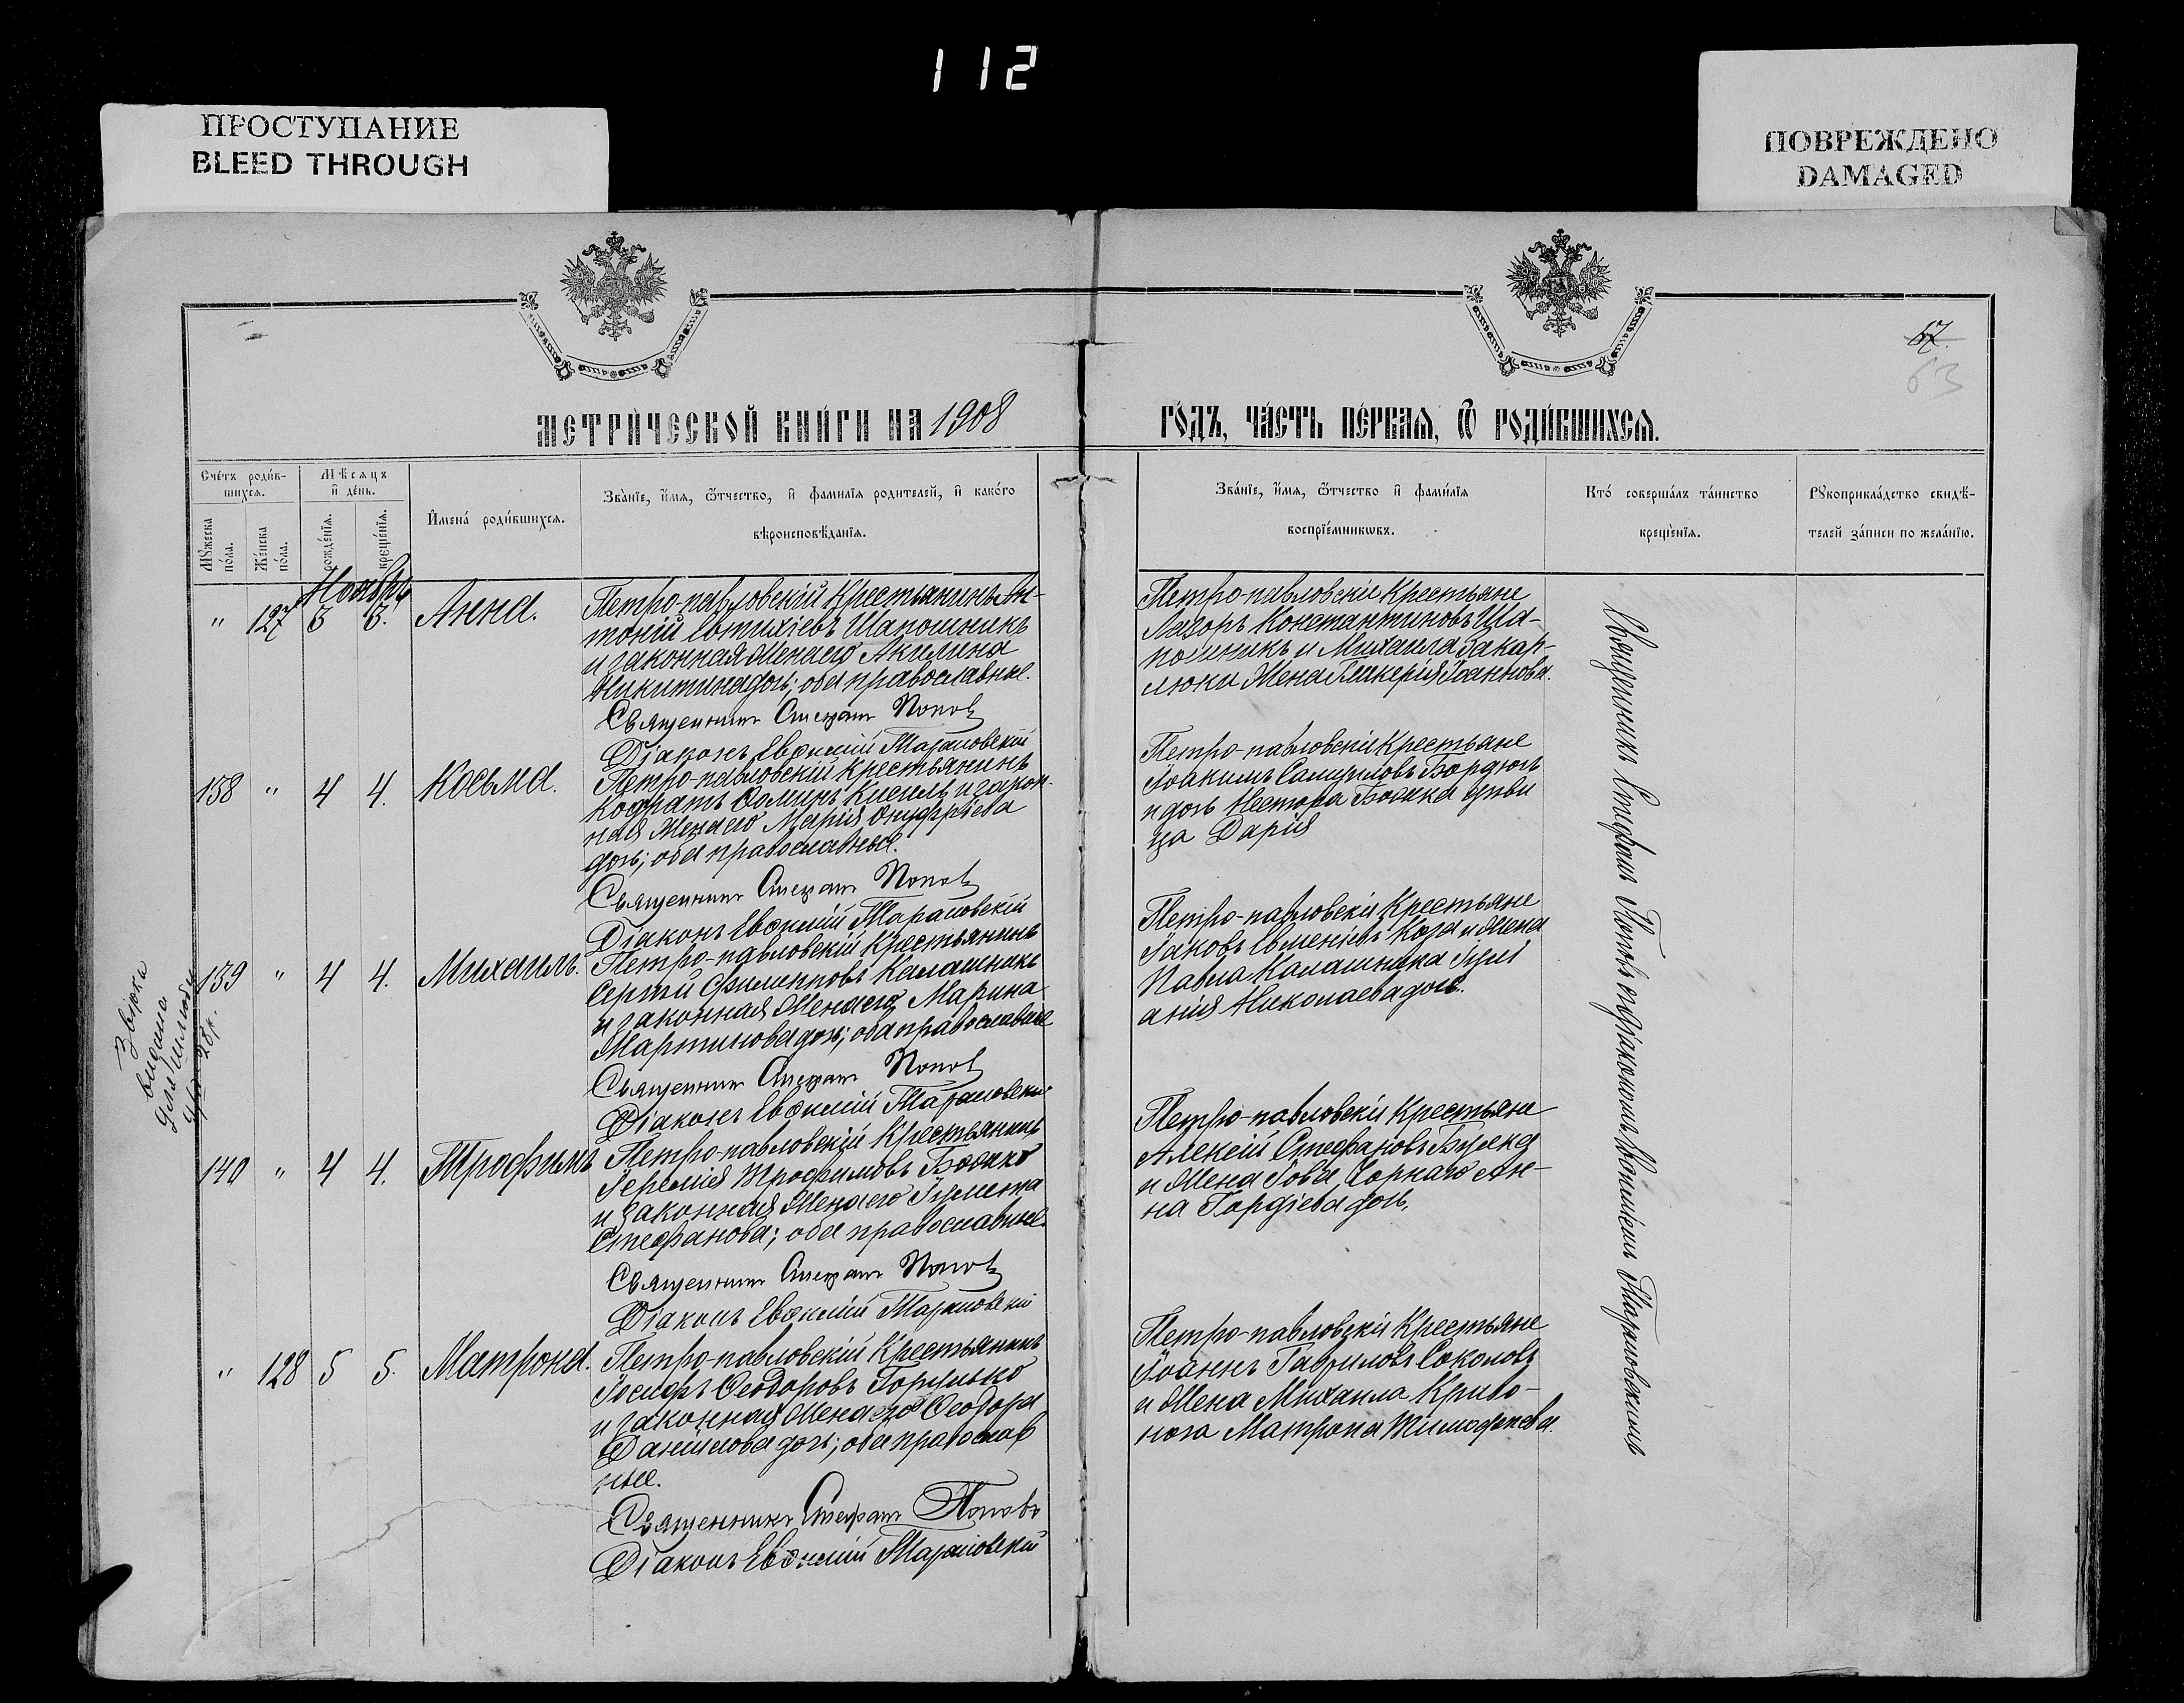 112
ПРОСТУПАНИЕ
BLEED THROUGH
ПОВРЕЖДЕНО
DAMAGED
67
63
МЕТРИ́ЧЕСКОЙ КНИ́ГИ НА 1908
ГО́ДЪ, ЧА́СТЬ ПЕ́РВАЯ, Ѿ РОДИ́ВШИХСЯ.
Счетъ роди́в-
шихся.
Мѣсяцъ
и де́нь.
Мꙋжеска
по́ла.
Же́нска
по́ла.
рожде́нїя.
креще́нїя.
И҆мена̀ роди́вшихся.
Зва́нїе, и҆́мя, ѻ҆́тчество, и҆ фами́лїя роди́телей, и҆ како́гѡ
вѣроисповѣ́данїя.
Зва́нїе, и҆́мя, ѻ҆́тчество и҆ фами́лїя
воспрїе́мникѡвъ.
Кто́ соверша́лъ та́инство
креще́нїя.
Рꙋкоприкла́дство свидѣ́-
телей за́писи по жела́нїю.
Ноябрь
" 127 3 3. Анна.
Петро-павловскій Крестьянинъ Ан-
тоній Евтихіевъ Шапошникъ
и законная Жена его Акилина
Никитина дочь; оба православные.
Священникъ Стефанъ Поповъ
Діаконъ Евѳимій Тарановскій
Петро-павловскіе Крестьяне
Лазорь Константиновъ Ша-
пошникъ и Михаила Закар-
люки Жена Гликерія Іоаннова.
138 " 4 4. Косьма.
Петро-павловскій Крестьянинъ
Кодратъ Ѳоминъ Кисиль и закон-
ная Жена его Марія Онуфріева
дочь; оба православные.
Священникъ Стефанъ Поповъ
Діаконъ Евѳимій Тарановскій
Петро-павловскіе Крестьяне
Іоакимъ Самуиловъ
и дочь Нестора
ца Дарія
139 " 4 4. Михаилъ.
Петро-павловскій Крестьянинъ
Сергій Филипповъ Калашникъ
и законная Жена его Марина
Мартинова дочь; оба православные
Священникъ Стефанъ Поповъ
Діаконъ Евѳимій Тарановскій
Петро-павловскіе Крестьяне
Іаковъ Евменіевъ Коза и Жена
Павла Калашника Іулі
анія Николаева дочь.
28 г.
140 " 4 4. Трофимъ
Петро-павловскій Крестьянинъ
Іеремія Трофимовъ
и законная Жена его Іулитта
Стефанова; оба православные.
Священникъ Стефанъ Поповъ
Діаконъ Евѳимій Тарановскій
Петро-павловскіе Крестьяне
Алексій Стефановъ
и Жена Іова Чорнаго Ан-
на Гордіева дочь.
" 128 5 5. Матрона.
Петро-павловскій Крестьянинъ
Іосифъ Ѳеодоровъ
и законная Жена его Ѳеодора
Даніилова дочь; оба православ
ные.
Священникъ Стефанъ Поповъ
Діаконъ Евѳимій Тарановскій
Петро-павловскіе Крестьяне
Іоаннъ Гавриловъ Соколовъ
и Жена Михаила Криво-
носа Матрона Тимофеева.
Священникъ Стефанъ Поповъ съ діакономъ Евѳиміемъ Тарановскимъ